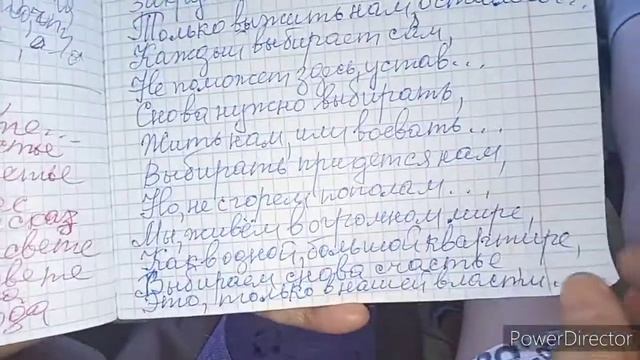 Только выжить нам осталось...
Каждый выбирает сам,
Не поможет здесь, устав...
Снова нужно выбирать,
Жить нам, или воевать...
Выбирать придется нам,
Но, не с горем пополам...,
Мы, живём в огромном мире,
Как в одной, большой квартире,
Выбираем снова счастье
Это, только в нашей власти...
свете
PowerDirector